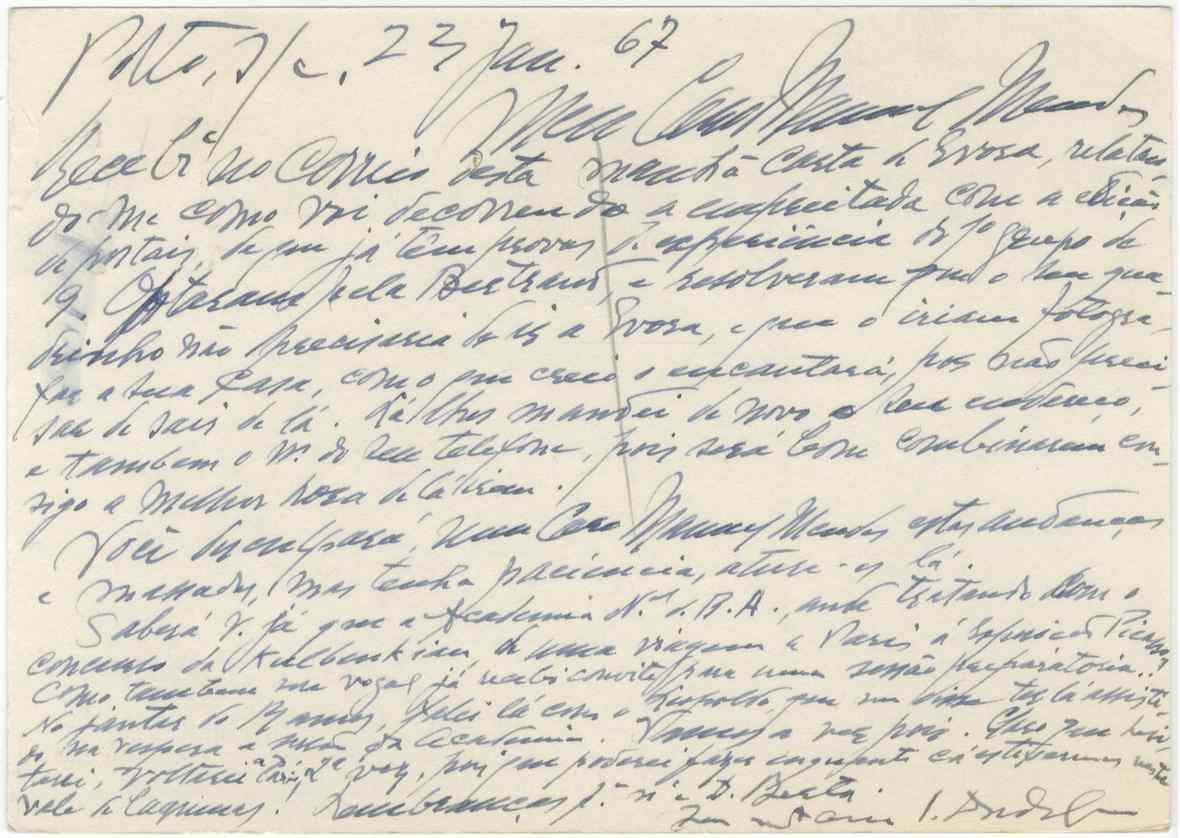 Porto, s/c, 23 Jan. 67
Meu Caro Manuel Mendes
Recebi no Correio desta manhã carta de Evora, relatan-
do-me como vai decorrendo a empreitada com a edição
de postais, de que já têm provas de experiência do 1º grupo de
9. Optaram pela Bertrand, e resolveram que o seu qua-
drinho não precisaria de ir a Evora, e que o iriam fotogra-
far a sua Casa, como que creio o encantará, pois não preci-
sar de sair de lá. Já lhes mandei de novo o seu endereço,
e tambem o nº do seu telefone, pois será bom combinarem con-
sigo a melhor hora de lá irem.
Você desculpará, meu Caro Manuel Mendes estas andanças,
e massadas, mas tenha paciencia, ature-os lá.
Saberá V. já que a Academia N.al d. B. A., anda tratando com o
concurso da Kulbenkian de uma viagem a Paris á Exposição Picasso,
como tambem sou vogal já recebi convite para uma sessão preparatoria..
No jantar do Ramos, falei lá com o Leopoldo, que me disse ter lá assisti-
do, na vespera a sessão da Academia. Vamos a ver pois. Creio que
voltarei a Paris, 2ª vez, pois que poderei fazer enquanto cá estivermos neste
vale de lagrimas! Lembranças D. Berta.